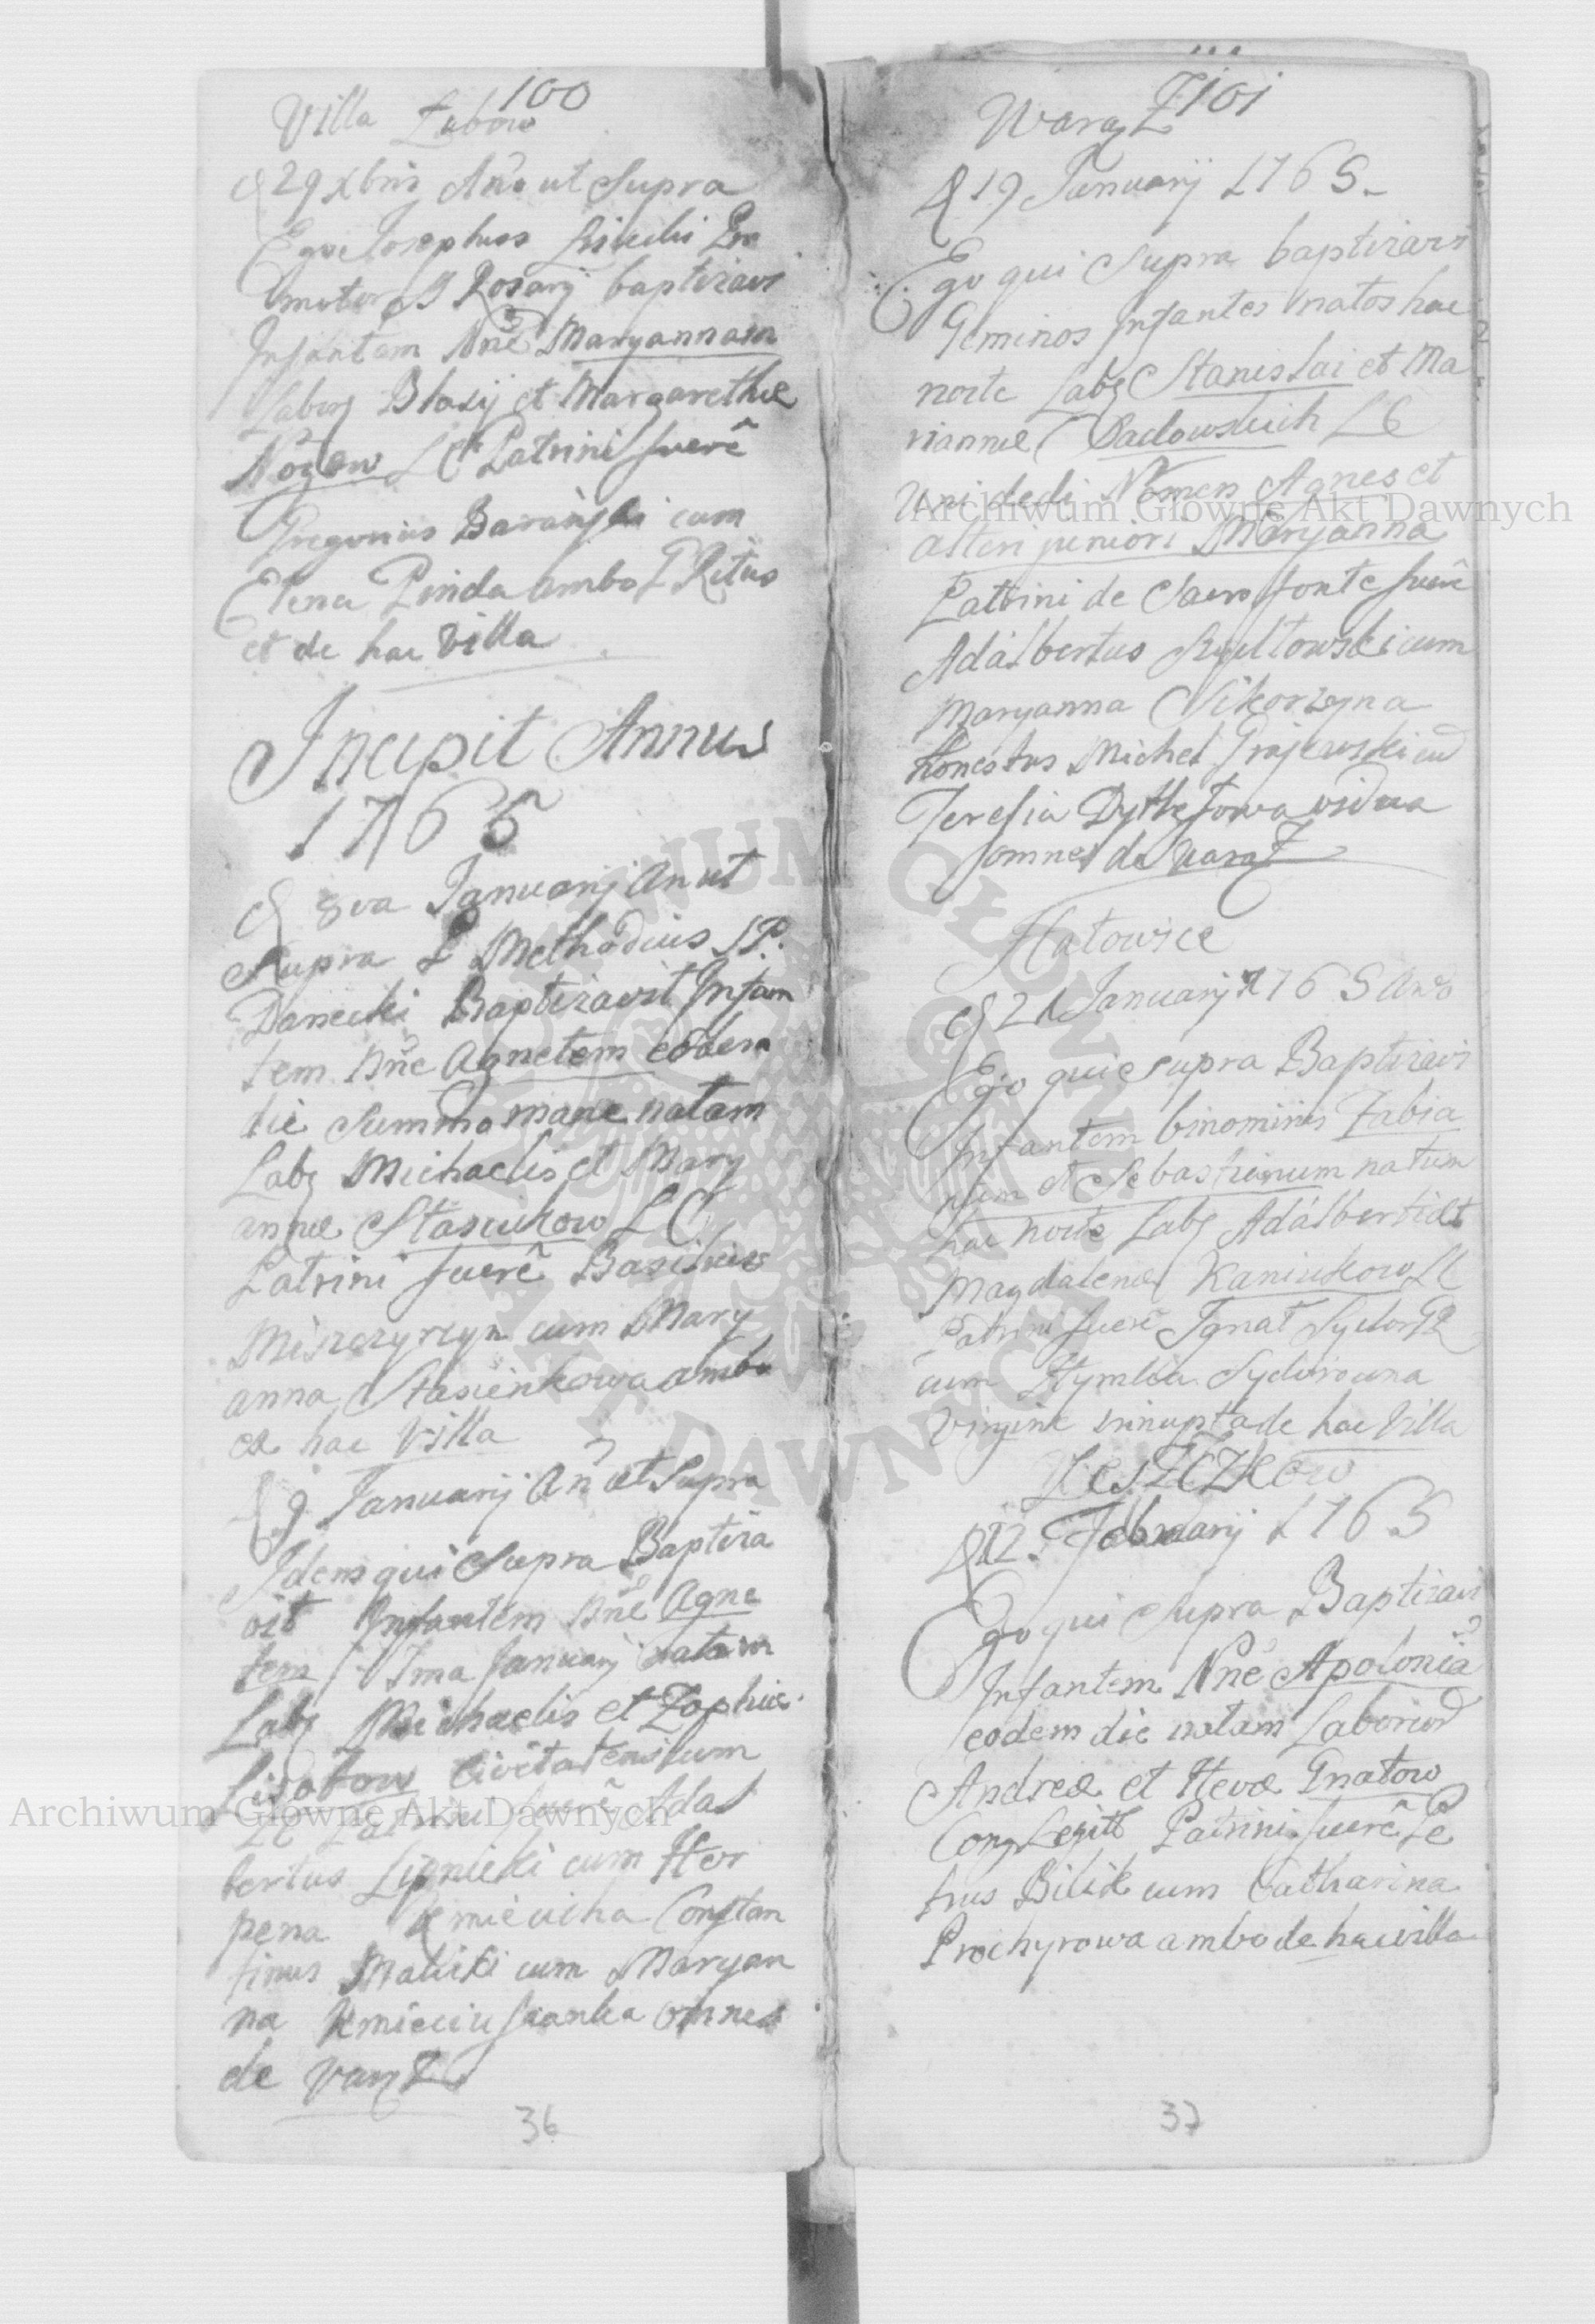 100
Villa Łubow
d 29 Xbris Anno ut Supra
Ego Josephus Pro
motor S Rosarij baptizavi
Infantem Nne Maryannam
Labor Blasij et Margarethæ
Nożow LC Patrini fuerê
Gregorius Barański cum
Elena Pinda ambo G Ritus
et de hac Villa
Incipit Annus
1765
d 8va Januarij An ut
Supra P Methodius SP.
Danecki Baptizavit Infan
tem Nne Agnetem eodem
die Summo mane natam
Labs Michaelis et Mary
annæ Stasiukow LC
Patrini fuerê Basilius
cum Mary
anna Stasienkowa ambo
ex hac Villa
d 9 Januarij An ut Supra
Idem qui Supra Baptiza
vit Infantem Nne Agne
tem 7ma Januarij natam
Labs Michaelis et Zophiæ
Civitatensium
LC Patrini fuerê Adal
bertus Lipnicki cum Hor
pena Kmiecicha Constan
tinus Malicki cum Maryan
na omnes
de Varęż
36
101
Waręż
d 19 Januarij 1765.
Ego qui Supra baptizavi
Geminos Infantes natos hac
nocte Labs Stanislai et Ma
riannæ Sadowskich LC
Uni dedi Nomen Agnes et
alteri juniori Maryanna
Patrini de Sacro fonte fuerê
Adalbertus cum
Maryanna Sikorzyna
Honestus Michel Grajewski cu
Teresia vidua
omnes de Varęż
Hatowice
d 21 Januarij 1765 Ano
Ego qui supra Baptizavi
Infantem binominis Fabia
num et Sebastianum natum
hac nocte Labs Adalberti et
Magdalenæ Kaniukow LC
Patrini fuerê Ignat Sydor GR
cum Hymka Sydorowna
Virgine innupta de hac Villa
Leszczkow
d 12 Februarij 1765
Ego qui Supra Baptizavi
Infantem Nne Apolonia
eodem die natam Laborios
Andreæ et Hevæ Gnatow
Conj Legitt Patrini fuerê Pe
trus Bilik cum Catharina
Prochyrowa ambo de hac villa
37
Archiwum Główne Akt Dawnych
Archiwum Główne Akt Dawnych
ARCHIWUM GŁÓWNE
AKT DAWNYCH